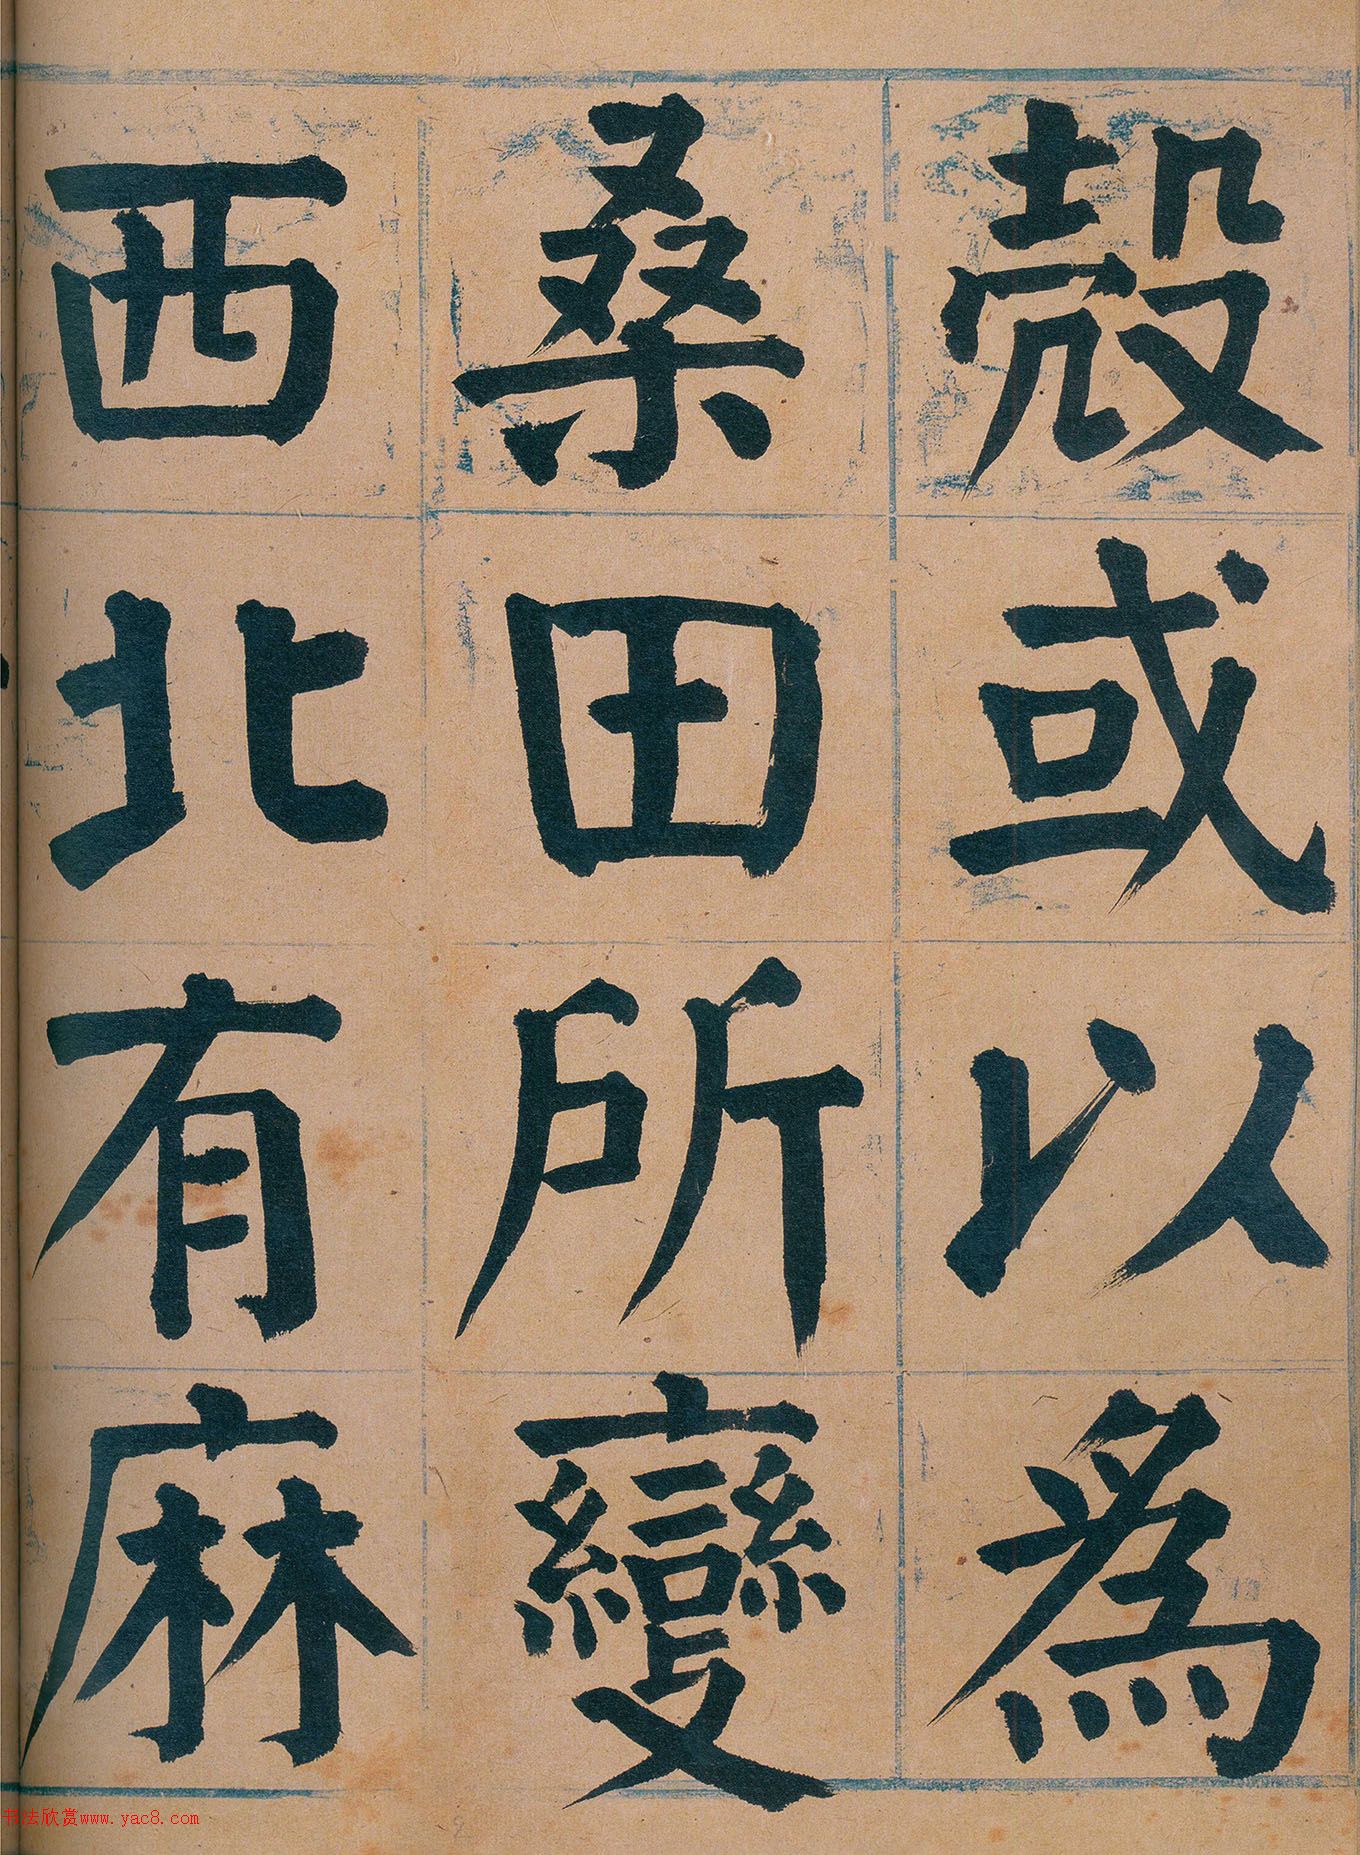 殼或以為
桑田所變
西北有麻
书法欣赏www.yac8.com